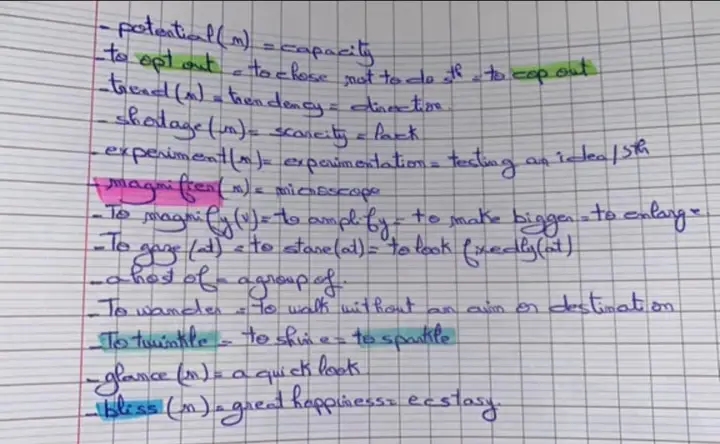 - potential (n) = capacity
- to opt out = to chose not to do sth = to cop out
- trend (n) = trendency = direction.
- shortage (n) = scarcity = lack
- experiment (n) = experimentation = testing an idea / sth
- magnifier (n) = microscope
- To magnify (v) = to amplify = to make bigger = to enlarge
- To gaze (at) = to stare (at) = to look fixedly (at)
- a host of = a group of.
- To wander = to walk without an aim or destination
- To twinkle = to shine = to sparkle
- glance (n) = a quick look
- bliss (n) = great happiness = ecstasy.